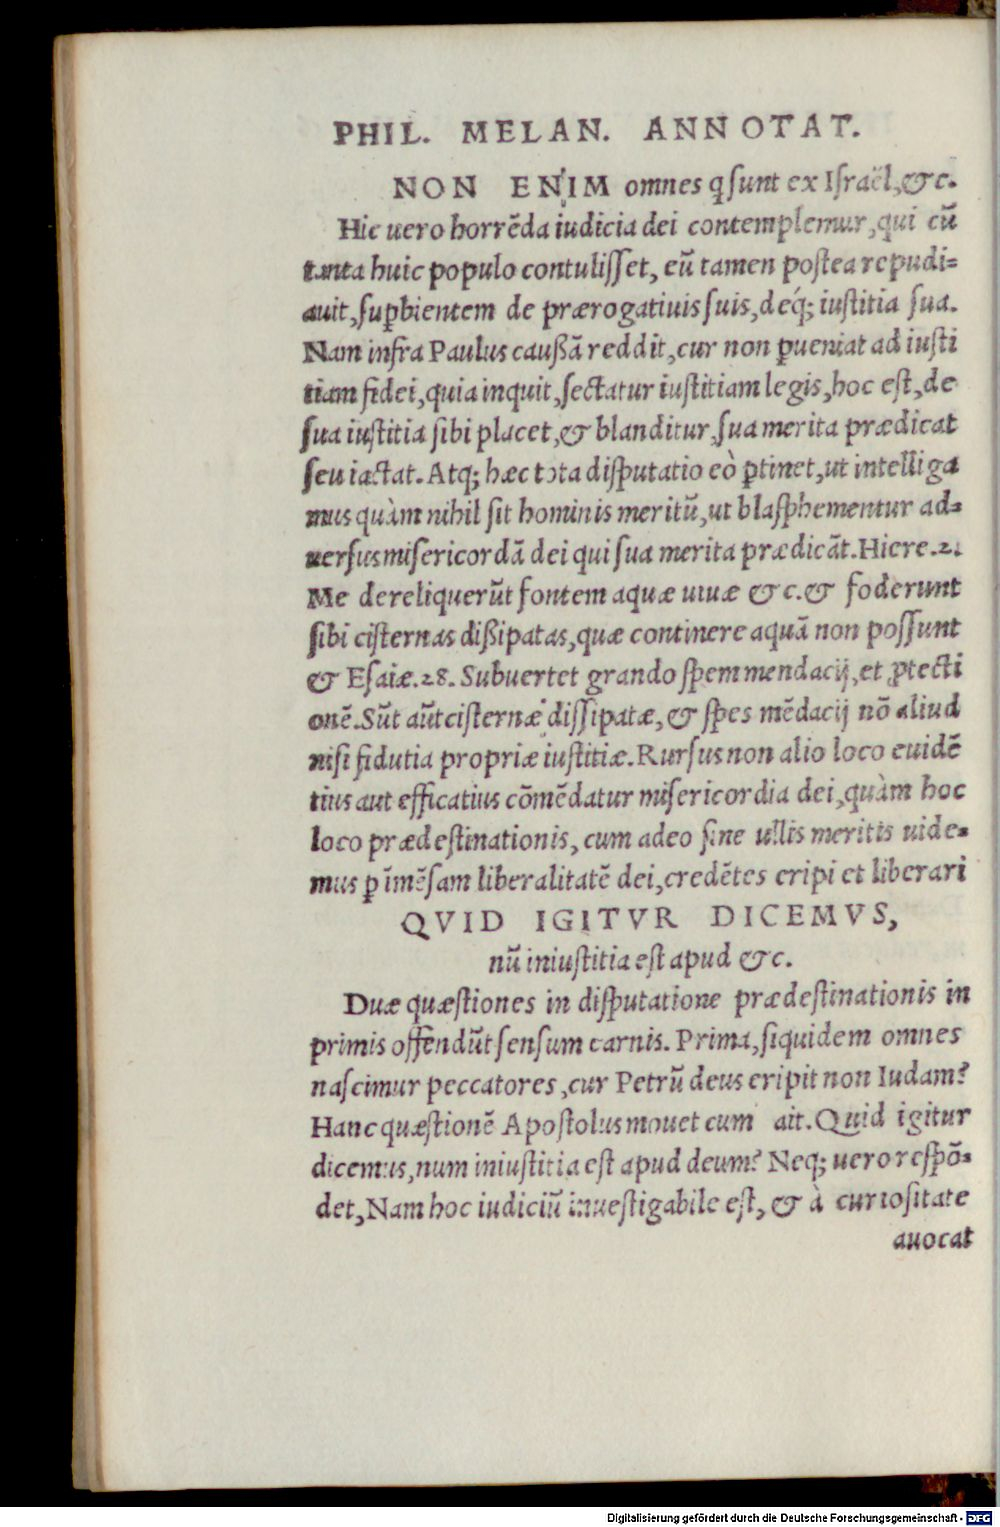 PHIL. MELAN. ANNOTAT.
NON ENIM omnes ꝗ sunt ex Israël, &c.
Hic uero horrẽda iudicia dei contemplemur, qui cũ
tanta huic populo contulisset, eũ tamen postea repudi=
auit, suꝑbientem de prærogatiuis suis, deq́; iustitia sua.
Nam infra Paulus caußã reddit, cur non ꝑueniat ad iusti
tiam fidei, quia inquit, sectatur iustitiam legis, hoc est, de
sua iustitia sibi placet, & blanditur, sua merita prædicat
seu iactat. Atq; hæc tota disputatio eò ꝑtinet, ut intelliga
mus quàm nihil sit hominis meritũ, ut blasphementur ad=
uersus misericordã dei qui sua merita prædicãt. Hiere. 2.
Me dereliquerũt fontem aquæ uiuæ &c. & foderunt
sibi cisternas dißipatas, quæ continere aquã non possunt
& Esaiæ. 28. Subuertet grando spem mendacij, et ꝓtecti
onẽ. Sũt aũt cisternæ dissipatæ, & spes mẽdacij nõ aliud
nisi fidutia propriæ iustitiæ. Rursus non alio loco euidẽ
tius aut efficatius cõmẽdatur misericordia dei, quàm hoc
loco prædestinationis, cum adeo sine ullis meritis uide=
mus ꝑ ĩmẽsam liberalitatẽ dei, credẽtes eripi et liberari
QVID IGITVR DICEMVS,
nũ iniustitia est apud &c.
Duæ quæstiones in disputatione prædestinationis in
primis offendũt sensum carnis. Prima, siquidem omnes
nascimur peccatores, cur Petrũ deus eripit non Iudam?
Hanc quæstionẽ Apostolus mouet cum ait. Quid igitur
dicemus, num iniustitia est apud deum? Neq; uero respõ=
det, Nam hoc iudiciũ inuestigabile est, & à curiositate
auocat
Digitalisierung gefördert durch die Deutsche Forschungsgemeinschaft - DFG